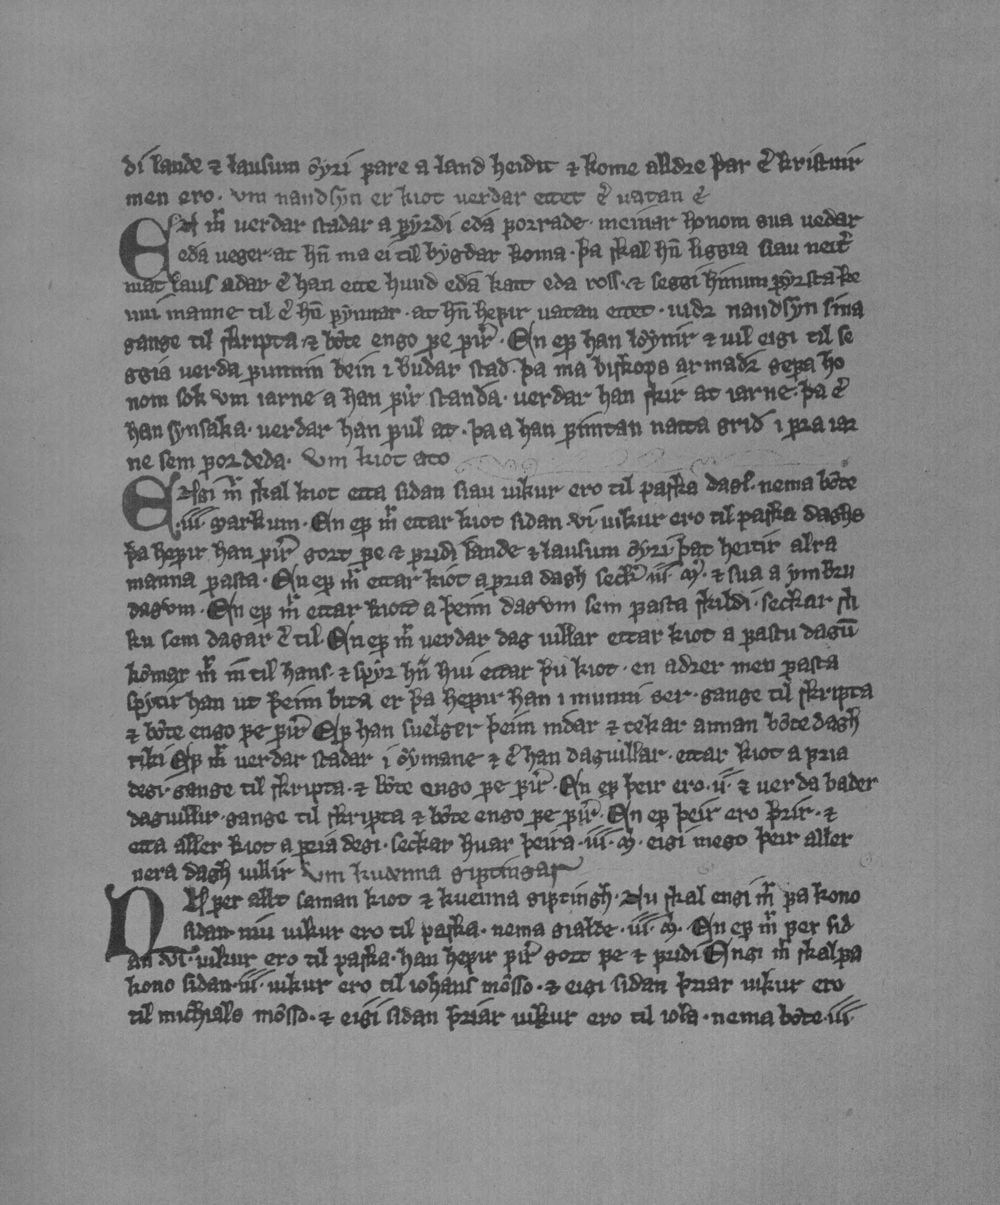 di lande ⁊ lausum ỏyri fare a land heidit ⁊ kome alldre þar er kristnir
men ero. vm naudsyn er kiot verdar ettet er uatan er
En mr verdar stadar a fyrdi eda forrade. meinar honom sua vedar
eda veger. at hn ma ei til bygdar koma. þa skal hn liggia siau neitr
mat laus adar er han ette hund eda katt eda ross. ⁊ seggi hinum fyrsta ke
nni manne til er hn fynnar. at hn hefir uatan ettet. uidr naudsyn sina
gange til skripta ⁊ bỏte engo fe firr. En ef han lỏynir ⁊ uil eigi til se
ggia verda funnin bein i budar stad. þa ma biskops armadr gefa ho
nom sok vm iarne a han firr standa. verdar han skir at iarne. þa er
han synsaka. verdar han ful at. þa a han fimtan natta grid i fra iar
ne sem fordeda. vm kiot ato
Engi mr skal kiot etta sidan siau uikur ero til paska dags. nema bỏte
.iii markum. En ef mr ettar kiot sidan .vi uikur ero til paska daghs
þa hefir han firr gort fe ⁊ fridi lande ⁊ lausum ỏyri þat heitir alra
manna fasta. En ef mr ettar kiot a fria dagh seckr iii m. ⁊ sua a ymbru
dagum. En ef mr ettar kiot a þeim dagum sem fasta skildi. seckar sli
ku sem dagar er til En ef mr verdar dag uillar ettar kiot a fastu dagū
kỏmar mr in til hans. ⁊ spyr hn hui ettar þu kiot. en adrer men fasta
spytir han ut þeim bita er þa hefir han i munni ser. gange til skripta
⁊ bỏte engo fe firr Ef han suelger þeim indar ⁊ tekar annan bỏte dagh
riki Ef mr verdar stadar i ỏymane ⁊ er han daguillar. ettar kiot a fria
degi. gange til skripta. ⁊ bỏte engo fe firr. En ef þeir ero .ii. ⁊ verda bader
daguillir. gange til skripta ⁊ bỏte engo fe firr. En ef þeir ero þrir. ⁊
etta aller kiot a fria degi. seckar huar þeira .iii. m. eigi mego þeir aller
vera dagh uillir vm kuenna giftingar
Nu fer allt saman kiot ⁊ kuenna giftingh. Nu skal engi mr fa kono
sidan niu uikur ero til paska. nema gialde .iii. m. En ef mr fer sid
an vi. uikur ero til paska. han hefir firr gort fe ⁊ fridi Engi mr skal fa
kono sidan .iii. uikur ero til iohans mỏsso. ⁊ eigi sidan þriar uikur ero
til michials mỏsso. ⁊ eigi sidan þriar uikur ero til iola. nema bỏte .iii